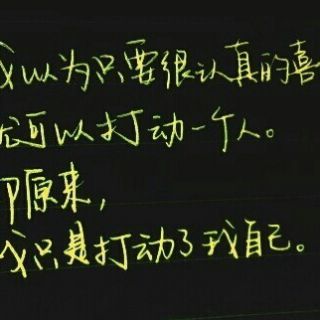 我以为只要很认真的喜
就可以打动一个人。
却原来,
我只是打动了我自己。